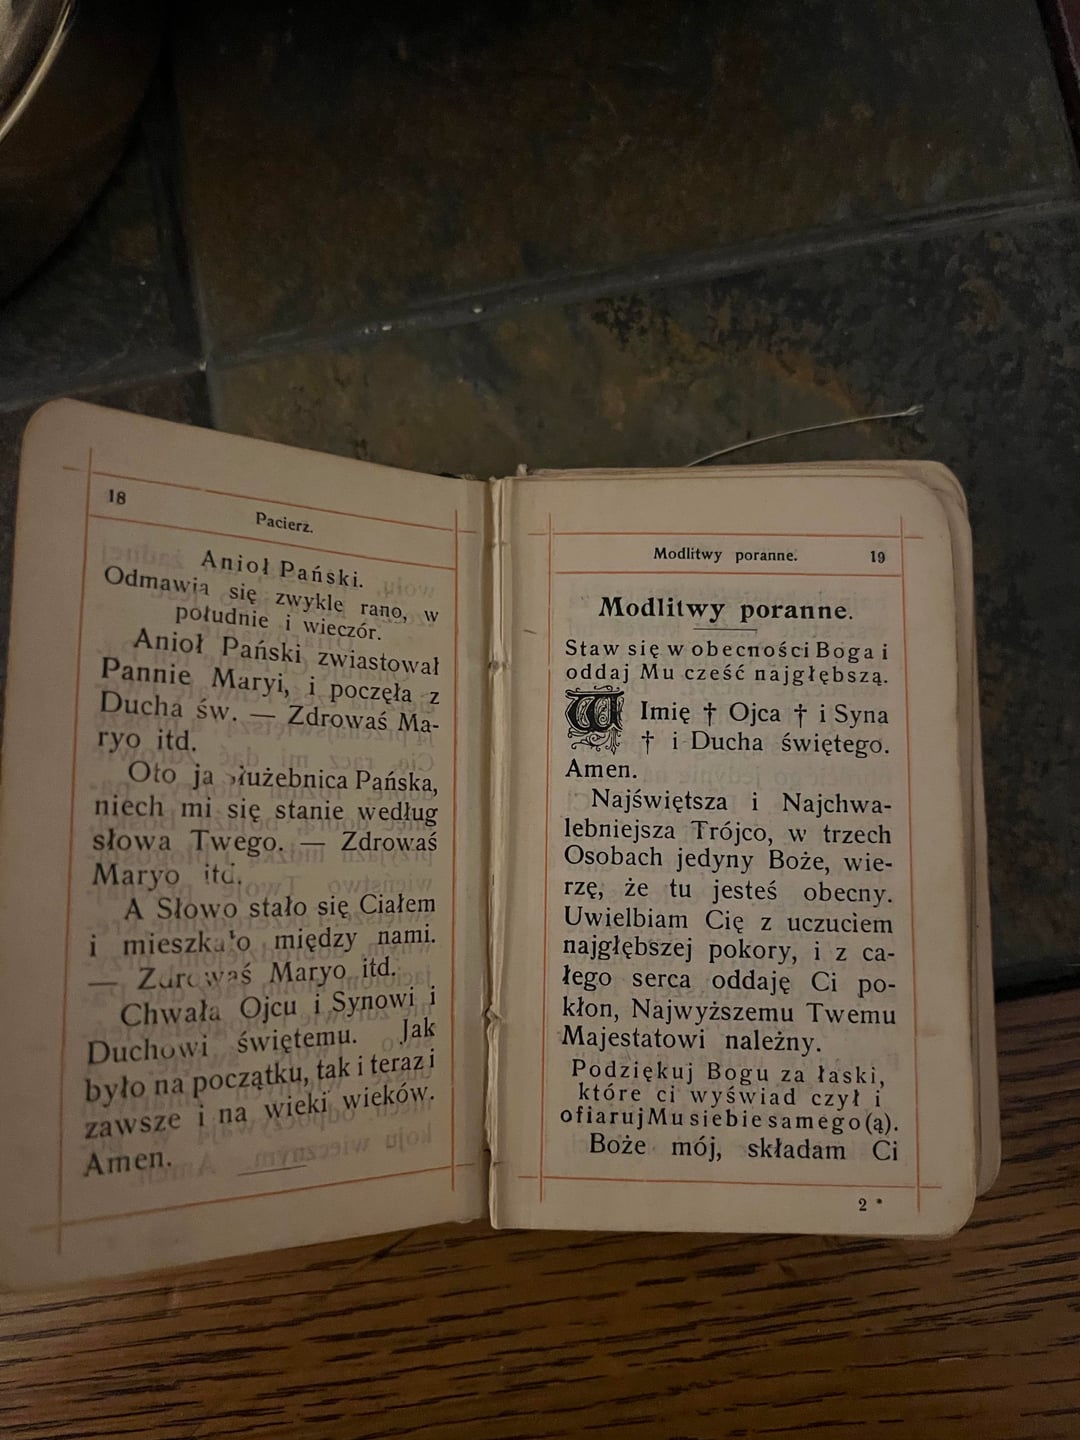 18
Pacierz.
Anioł Pański.
Odmawia się zwykle rano, w
południe i wieczór.
Anioł Pański zwiastował
Pannie Maryi, i poczęła z
Ducha św. — Zdrowaś Ma-
ryo itd.
Oto ja służebnica Pańska,
niech mi się stanie według
słowa Twego. — Zdrowaś
Maryo itd.
A Słowo stało się Ciałem
i mieszkało między nami.
— Zdrowaś Maryo itd.
Chwała Ojcu i Synowi i
Duchowi świętemu. Jak
było na początku, tak i teraz i
zawsze i na wieki wieków.
Amen.
Modlitwy poranne. 19
Modlitwy poranne.
Staw się w obecności Boga i
oddaj Mu cześć najgłębszą.
W Imię † Ojca † i Syna
† i Ducha świętego.
Amen.
Najświętsza i Najchwa-
lebniejsza Trójco, w trzech
Osobach jedyny Boże, wie-
rzę, że tu jesteś obecny.
Uwielbiam Cię z uczuciem
najgłębszej pokory, i z ca-
łego serca oddaję Ci po-
kłon, Najwyższemu Twemu
Majestatowi należny.
Podziękuj Bogu za łaski,
które ci wyświad czył i
ofiaruj Mu siebie samego (ą).
Boże mój, składam Ci
2 *